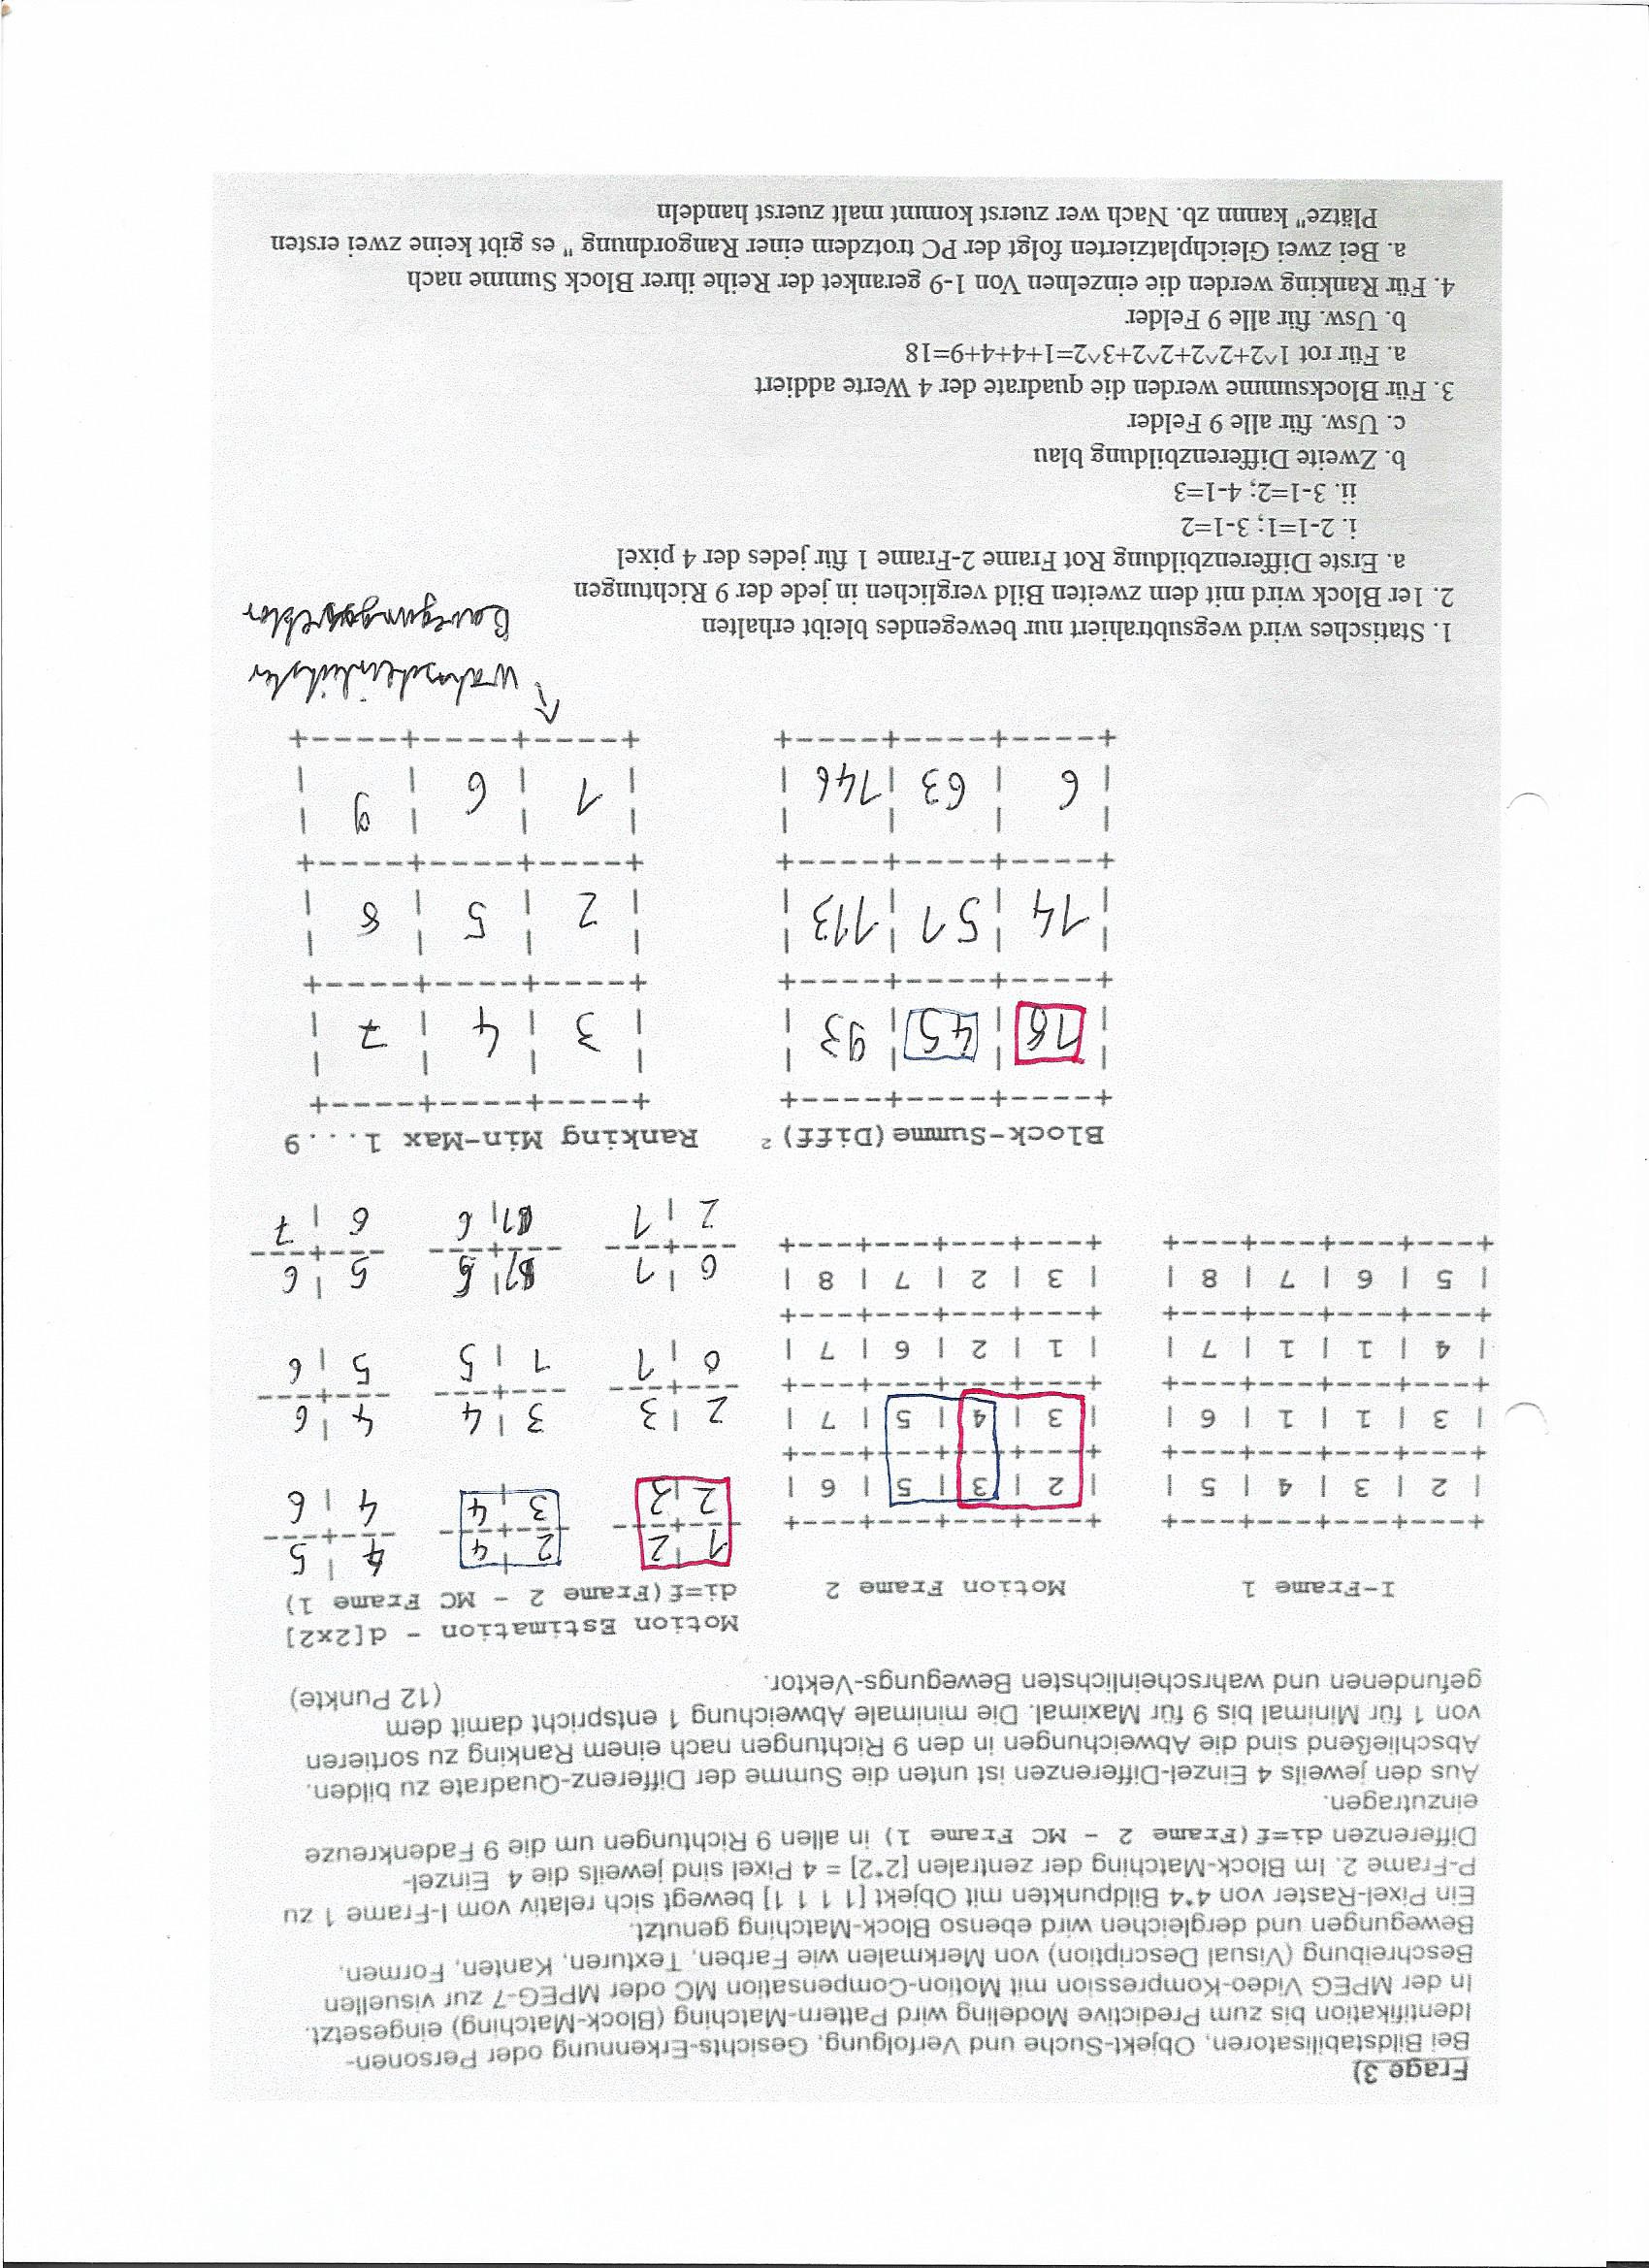 Frage 3)
Bei Bildstabilisatoren, Objekt-Suche und Verfolgung, Gesichts-Erkennung oder Personen-
Identifikation bis zum Predictive Modeling wird Pattern-Matching (Block-Matching) eingesetzt.
In der MPEG Video-Kompression mit Motion-Compensation MC oder MPEG-7 zur visuellen
Beschreibung (Visual Description) von Merkmalen wie Farben, Texturen, Kanten, Formen,
Bewegungen und dergleichen wird ebenso Block-Matching genutzt.
Ein Pixel-Raster von 4*4 Bildpunkten mit Objekt [1 1 1 1] bewegt sich relativ vom I-Frame 1 zu
P-Frame 2. Im Block-Matching der zentralen [2*2] = 4 Pixel sind jeweils die 4 Einzel-
Differenzen di=f(Frame 2 - MC Frame 1) in allen 9 Richtungen um die 9 Fadenkreuze
einzutragen.
Aus den jeweils 4 Einzel-Differenzen ist unten die Summe der Differenz-Quadrate zu bilden.
Abschließend sind die Abweichungen in den 9 Richtungen nach einem Ranking zu sortieren
von 1 für Minimal bis 9 für Maximal. Die minimale Abweichung 1 entspricht damit dem
gefundenen und wahrscheinlichsten Bewegungs-Vektor. (12 Punkte)
I-Frame 1
| 2 | 3 | 4 | 5 |
| 3 | 1 | 1 | 6 |
| 4 | 1 | 1 | 7 |
| 5 | 6 | 7 | 8 |
Motion Frame 2
| 2 | 3 | 5 | 6 |
| 3 | 4 | 5 | 7 |
| 1 | 2 | 6 | 7 |
| 3 | 2 | 7 | 8 |
Motion Estimation - d[2x2]
di=f(Frame 2 - MC Frame 1)
1 2 2 4 4 5
2 3 3 4 4 6
2 3 3 4 4 6
0 1 1 5 5 6
0 1 1 5 5 6
2 1 1 6 6 7
Block-Summe(Diff)²
18 45 93
14 51 113
6 63 146
Ranking Min-Max 1...9
3 4 7
2 5 8
1 6 9
↑ wahrscheinlichster
Bewegungsvektor
1. Statisches wird wegsubtrahiert nur bewegendes bleibt erhalten
2. 1er Block wird mit dem zweiten Bild verglichen in jede der 9 Richtungen
a. Erste Differenzbildung Rot Frame 2-Frame 1 für jedes der 4 pixel
i. 2-1=1; 3-1=2
ii. 3-1=2; 4-1=3
b. Zweite Differenzbildung blau
c. Usw. für alle 9 Felder
3. Für Blocksumme werden die quadrate der 4 Werte addiert
a. Für rot 1^2+2^2+2^2+3^2=1+4+4+9=18
b. Usw. für alle 9 Felder
4. Für Ranking werden die einzelnen Von 1-9 geranket der Reihe ihrer Block Summe nach
a. Bei zwei Gleichplatzierten folgt der PC trotzdem einer Rangordnung " es gibt keine zwei ersten
Plätze" kannn zb. Nach wer zuerst kommt malt zuerst handeln